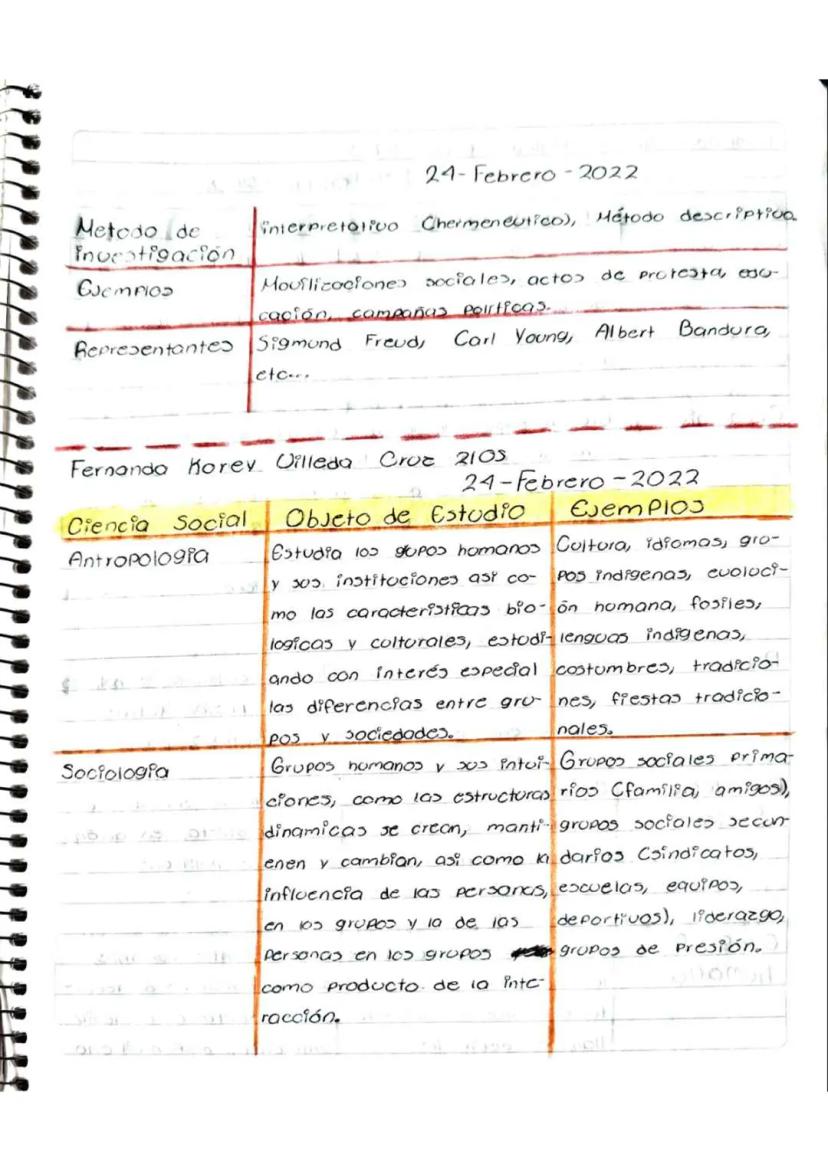 24-Febrero-2022
Metodo de investigación
interpretativo (hermeneutico), Método descriptivo
Ejemplos
Movilizaciones sociales, actos de protesta, edu-
cación, campañas políticas.
Representantes
Sigmund Freud, Carl Young, Albert Bandura,
etc...
Fernando Korev Villeda Cruz 210S
24-Febrero-2022
Ciencia Social
Objeto de Estudio
Ejemplos
Antropologia
Estudia los gupos humanos
y sus instituciones asi co-
mo las caracteristicas bio-
logicas y culturales, estudi-
ando con interés especial
las diferencias entre gru-
pos y sociedades.
Cultura, idiomas, gro-
pos indigenas, evoluci-
ón humana, fosiles,
lenguas indigenas,
costumbres, tradicio-
nes, fiestas tradicio-
nales.
Sociologia
Grupos humanos y sus intui-
ciones, como las estructuras
dinamicas se crean, manti-
enen y cambian, asi como la
influencia de las personas,
en los grupos y la de las
personas en los grupos
como producto de la inte-
racción.
Grupos sociales prima-
rios (familia, amigos),
grupos sociales secun-
darios (sindicatos,
escuelas, equipos,
deportivos), liderazgo,
grupos de presión.